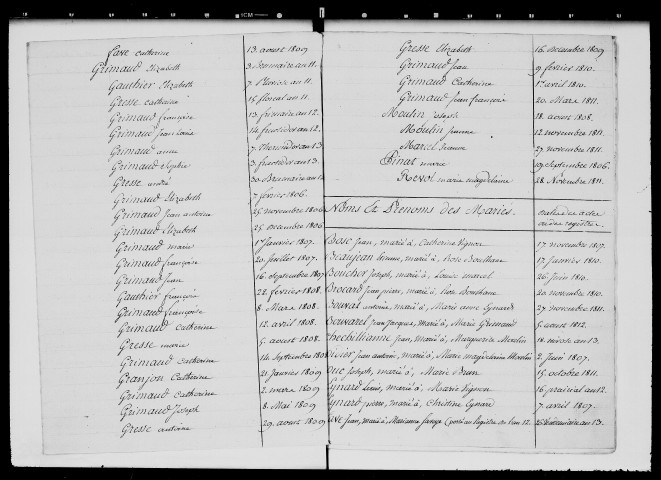 Favre Catherine 13 aoust 1809
Grimaud Elizabeth 3 Brumaire an 11.
Gauthier Elizabeth 7 Nivose an 11.
Gresse Catherine 15 floreal an 11.
Grimaud françoise 13 frimaire an 12.
Grimaud Jean Louis 14 fructidor an 12.
Grimaud anne 7 Thermidor an 13
Grimaud Sophie 3 fructidor an 13.
Gresse andré 30 Brumaire an 14
Grimaud Elizabeth 7 fevrier 1806.
Grimaud Jean antoine 25 novembre 1806
Grimaud Elizabeth 25 decembre 1806
Grimaud marie 1er Janvier 1807.
Grimaud françoise 20 Juillet 1807.
Grimaud Jean 16 Septembre 1807
Gauthier françoise 22 fevrier 1808.
Grimaud françoise 8 Mars 1808.
Grimaud Catherine 12 avril 1808.
Gresse marie 5 aoust 1808.
Grimaud Catherine 14 Septembre 1808
Granjon Catherine 21 Janvier 1809
Grimaud Catherine 2 mars 1809
Grimaud Joseph 8 Mai 1809
Gresse antoine 29 aoust 1809
Gresse Elizabeth 16 decembre 1809
Grimaud Jean 9 fevrier 1810.
Grimaud Catherine 1er avril 1810.
Grimaud Jean françois 20 Mars 1811.
Moulin Joseph 28 aoust 1808.
Moulin jeanne 12 novembre 1811.
Marcel 27 novembre 1811.
Pinat marie 19 Septembre 1806.
Revol marie magdelaine 28 Novembre 1811.
Noms Et Prenoms des Mariés. dattes des actes au dit registre.
Besse Jean, marié à, Catherine Vignon 17 novembre 1807.
Beaujean Etienne, marié à, Rose Bonthoux 17 janvier 1810.
Boucher Joseph, marié à, Louise marcel 26 Juin 1810.
Brocard Jean pierre, marié à, Rose Bonthoux 20 novembre 1810.
Bouvat antoine, marié à, Marie anne Eynard 27 novembre 1811.
Bouvarel Jean Jacques, marié à, Marie Grimaud 5 aoust 1812.
Chechillianne Jean, Marié à, Marguerite Moulin 18 nivose an 13.
Jean antoine, marié à, Marie magdelaine Moulin 2 Juin 1807.
Duc Joseph, marié à, Marie Brun 15 octobre 1811.
Eynard Louis, marié à, Marie Vignon 16 prairial an 12.
Eynard pierre, marié à, Christine Eynard 7 avril 1807.
Jean, marié à, Marianne (porté au Registre de l'an 12. 26 Vendemiaire an 13.